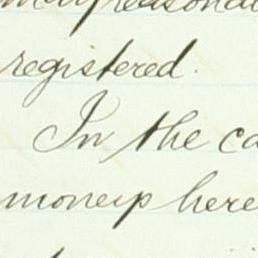 registered.
In the ca
moneys here